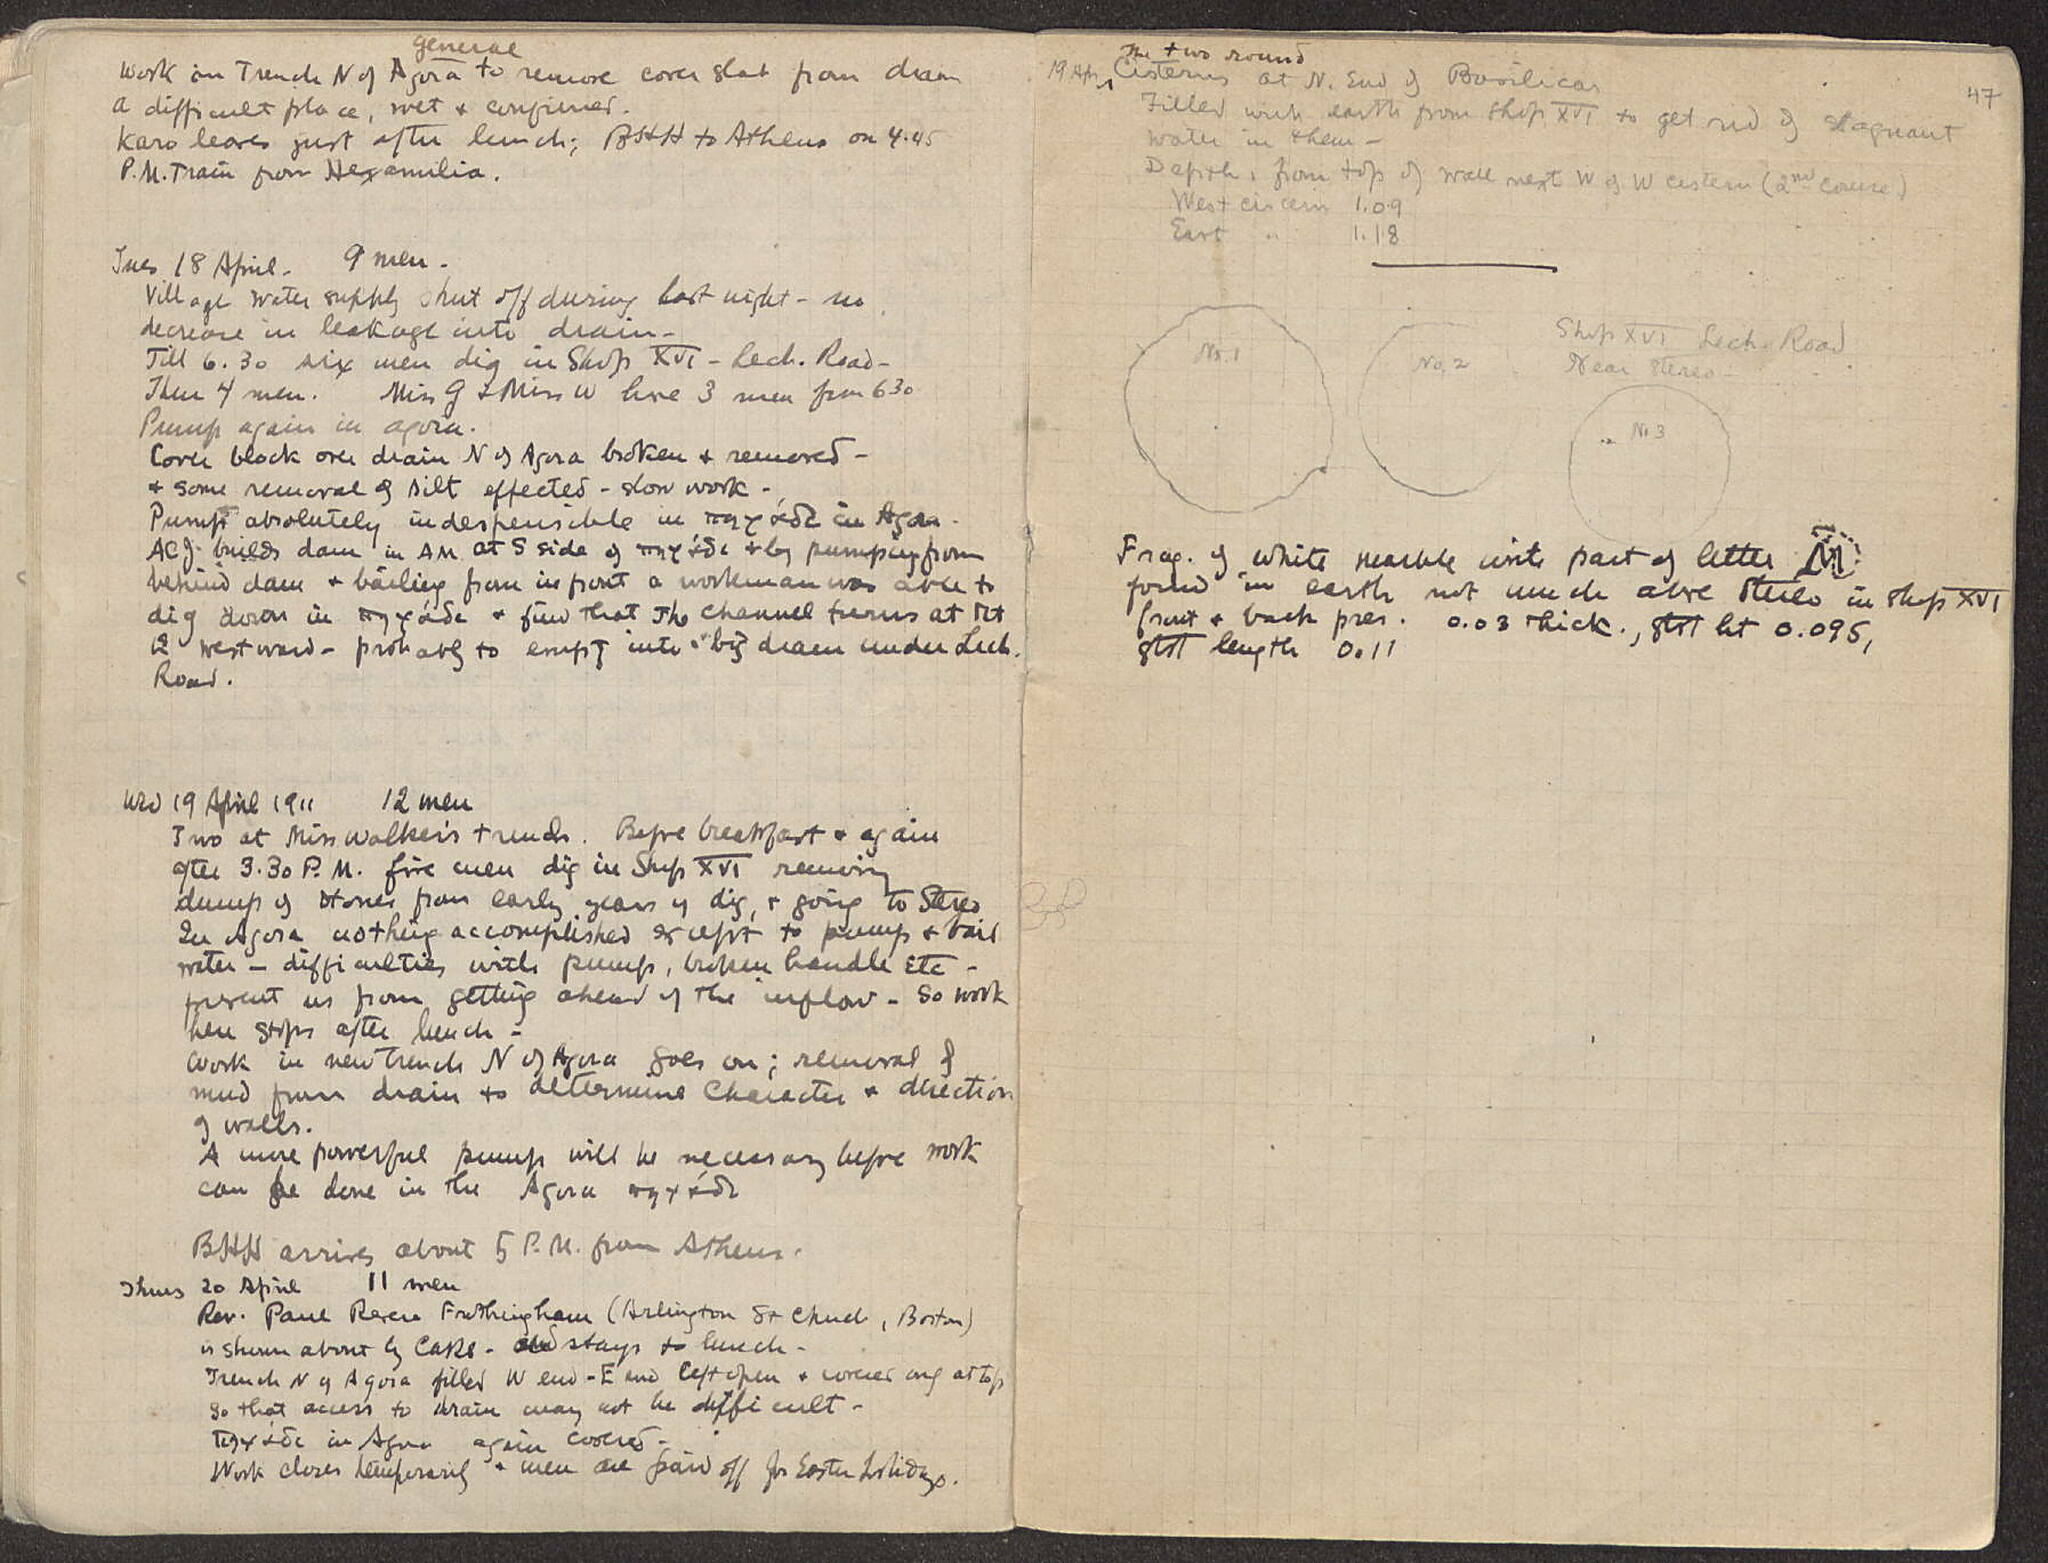 general
Work on Trench N of Agora to remove cover slab from drain
a difficult place, wet & confined.
Karo leaves just after lunch; BHH to Athens on 4.45
P.M. Train from Hexamilia.
Tues 18 April - 9 men -
Village water supply shut off during last night - no
decrease in leakage into drain -
Till 6.30 six men dig in Shop XVI - Lech. Road -
Then 4 men. Miss G & Miss W have 3 men from 630
Pump again in agora.
Cover block over drain N of Agora broken & removed -
& some removal of silt effected - slow work -
Pump absolutely indespensible in πηγάδι in Agora -
ACJ builds dam in AM at S side of πηγάδι & by pumping from
behind dam & bailing from in front a workman was able to
dig down in πηγάδι & find that the channel turns at rt
westward - probably to empty into big drain under Lech.
Road.
Wed 19 April 1911 12 men
Two at Miss Walker's trench. Before breakfast & again
after 3.30 P.M. five men dig in Shop XVI removing
dump of stones from early years of dig, & going to Stereo
In Agora nothing accomplished except to pump & bail
water - difficulties with pump, broken handle etc -
prevent us from getting ahead of the inflow - So work
here stops after lunch -
Work in new trench N of Agora goes on; removal of
mud from drain to determine character & direction
of walls.
A more powerful pump will be necessary before work
can be done in the Agora πηγάδι
BHH arrives about 5 P.M. from Athens.
Thurs 20 April 11 men
Rev. Paul Revere Frothingham (Arlington St Church, Boston)
is shown about by - and stays to lunch -
Trench N of Agora filled W end - E end left open & at top
so that access to drain may not be difficult -
πηγάδι in Agora again covered -
Work closes temporarily & men are paid off for Easter holidays.
47
The two round
19 Apr Cisterns at N. End of Basilica
Filled with earth from Shop XVI to get rid of stagnant
water in them -
Depth: from top of wall next W of W cistern (2nd course)
West cistern 1.09
East " 1.18
No. 1
No. 2
Shop XVI Lech. Road
Near Stereo -
No 3
Frag. of white marble with part of letter M
found in earth not much above Stereo in Shop XVI
front & back pres. 0.03 thick., gtst ht 0.095,
gtst length 0.11